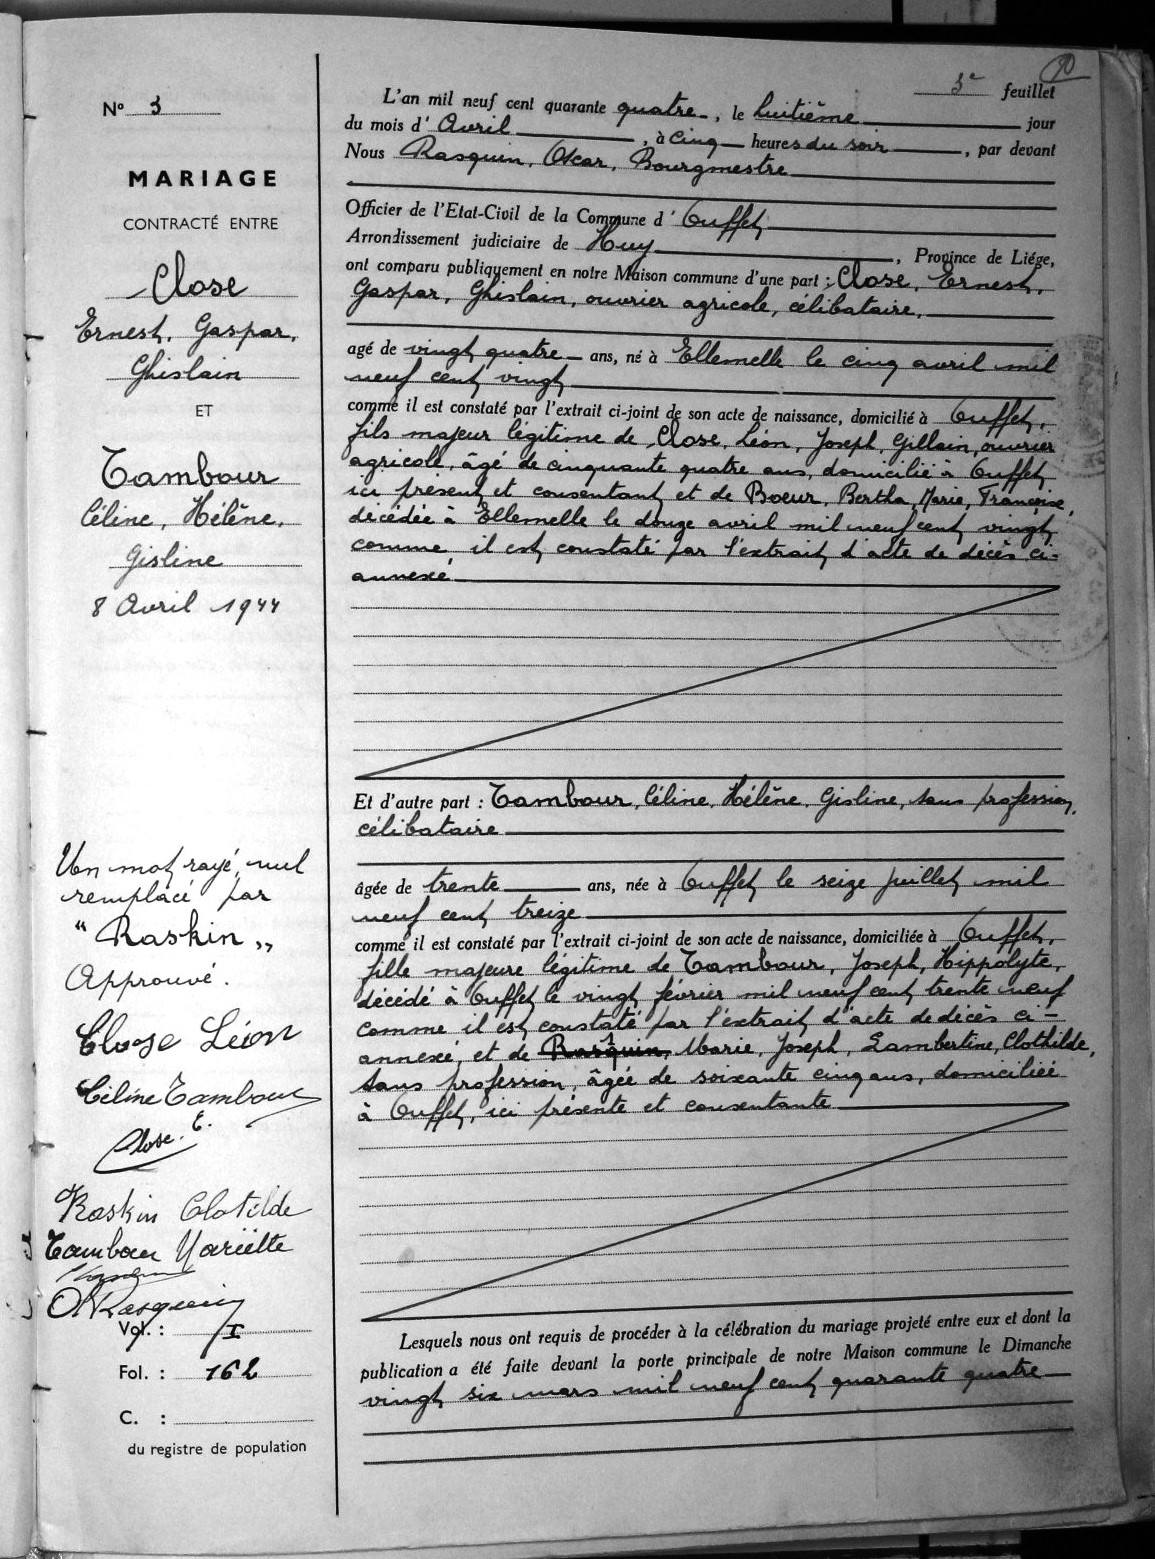 10
3e feuillet
N° 3
MARIAGE
CONTRACTÉ ENTRE
Close
Ernest, Gaspar,
Ghislain
ET
Tambour
Céline, Hélène,
Gisline
8 Avril 1944
Un mot rayé, nul
remplacé par
“ Raskin „
Approuvé.
Close Léon
Céline Tambour
Close. E.
Raskin Clotilde
Tambour Mariëtte
O Rasquin
Vol. : I
Fol. : 162
C. :
du registre de population
L'an mil neuf cent quarante quatre, le huitième jour
du mois d' Avril, à cinq heures du soir, par devant
Nous Rasquin, Oscar, Bourgmestre
Officier de l'Etat-Civil de la Commune d' Ouffet
Arrondissement judiciaire de Huy, Province de Liége,
ont comparu publiquement en notre Maison commune d'une part : Close, Ernest,
Gaspar, Ghislain, ouvrier agricole, célibataire,
agé de vingt quatre ans, né à Ellemelle le cinq avril mil
neuf cent vingt
comme il est constaté par l'extrait ci-joint de son acte de naissance, domicilié à Ouffet,
fils majeur légitime de Close, Léon, Joseph, Gillain, ouvrier
agricole, âgé de cinquante quatre ans, domicilié à Ouffet,
ici présent et consentant et de Boeur, Bertha, Marie, Françoise,
décédée à Ellemelle le douze avril mil neuf cent vingt,
comme il est constaté par l'extrait d'acte de décès ci-
annexé
Et d'autre part : Tambour, Céline, Hélène, Gisline, sans profession,
célibataire
âgée de trente ans, née à Ouffet le seize juillet mil
neuf cent treize
comme il est constaté par l'extrait ci-joint de son acte de naissance, domiciliée à Ouffet,
fille majeure légitime de Tambour, Joseph, Hippolyte,
décédé à Ouffet le vingt février mil neuf cent trente neuf
comme il est constaté par l'extrait d'acte de décès ci-
annexé, et de Rasquin, Marie, Joseph, Lambertine, Clothilde,
sans profession, âgée de soixante cinq ans, domiciliée
à Ouffet, ici présente et consentante
Lesquels nous ont requis de procéder à la célébration du mariage projeté entre eux et dont la
publication a été faite devant la porte principale de notre Maison commune le Dimanche
vingt six mars mil neuf cent quarante quatre